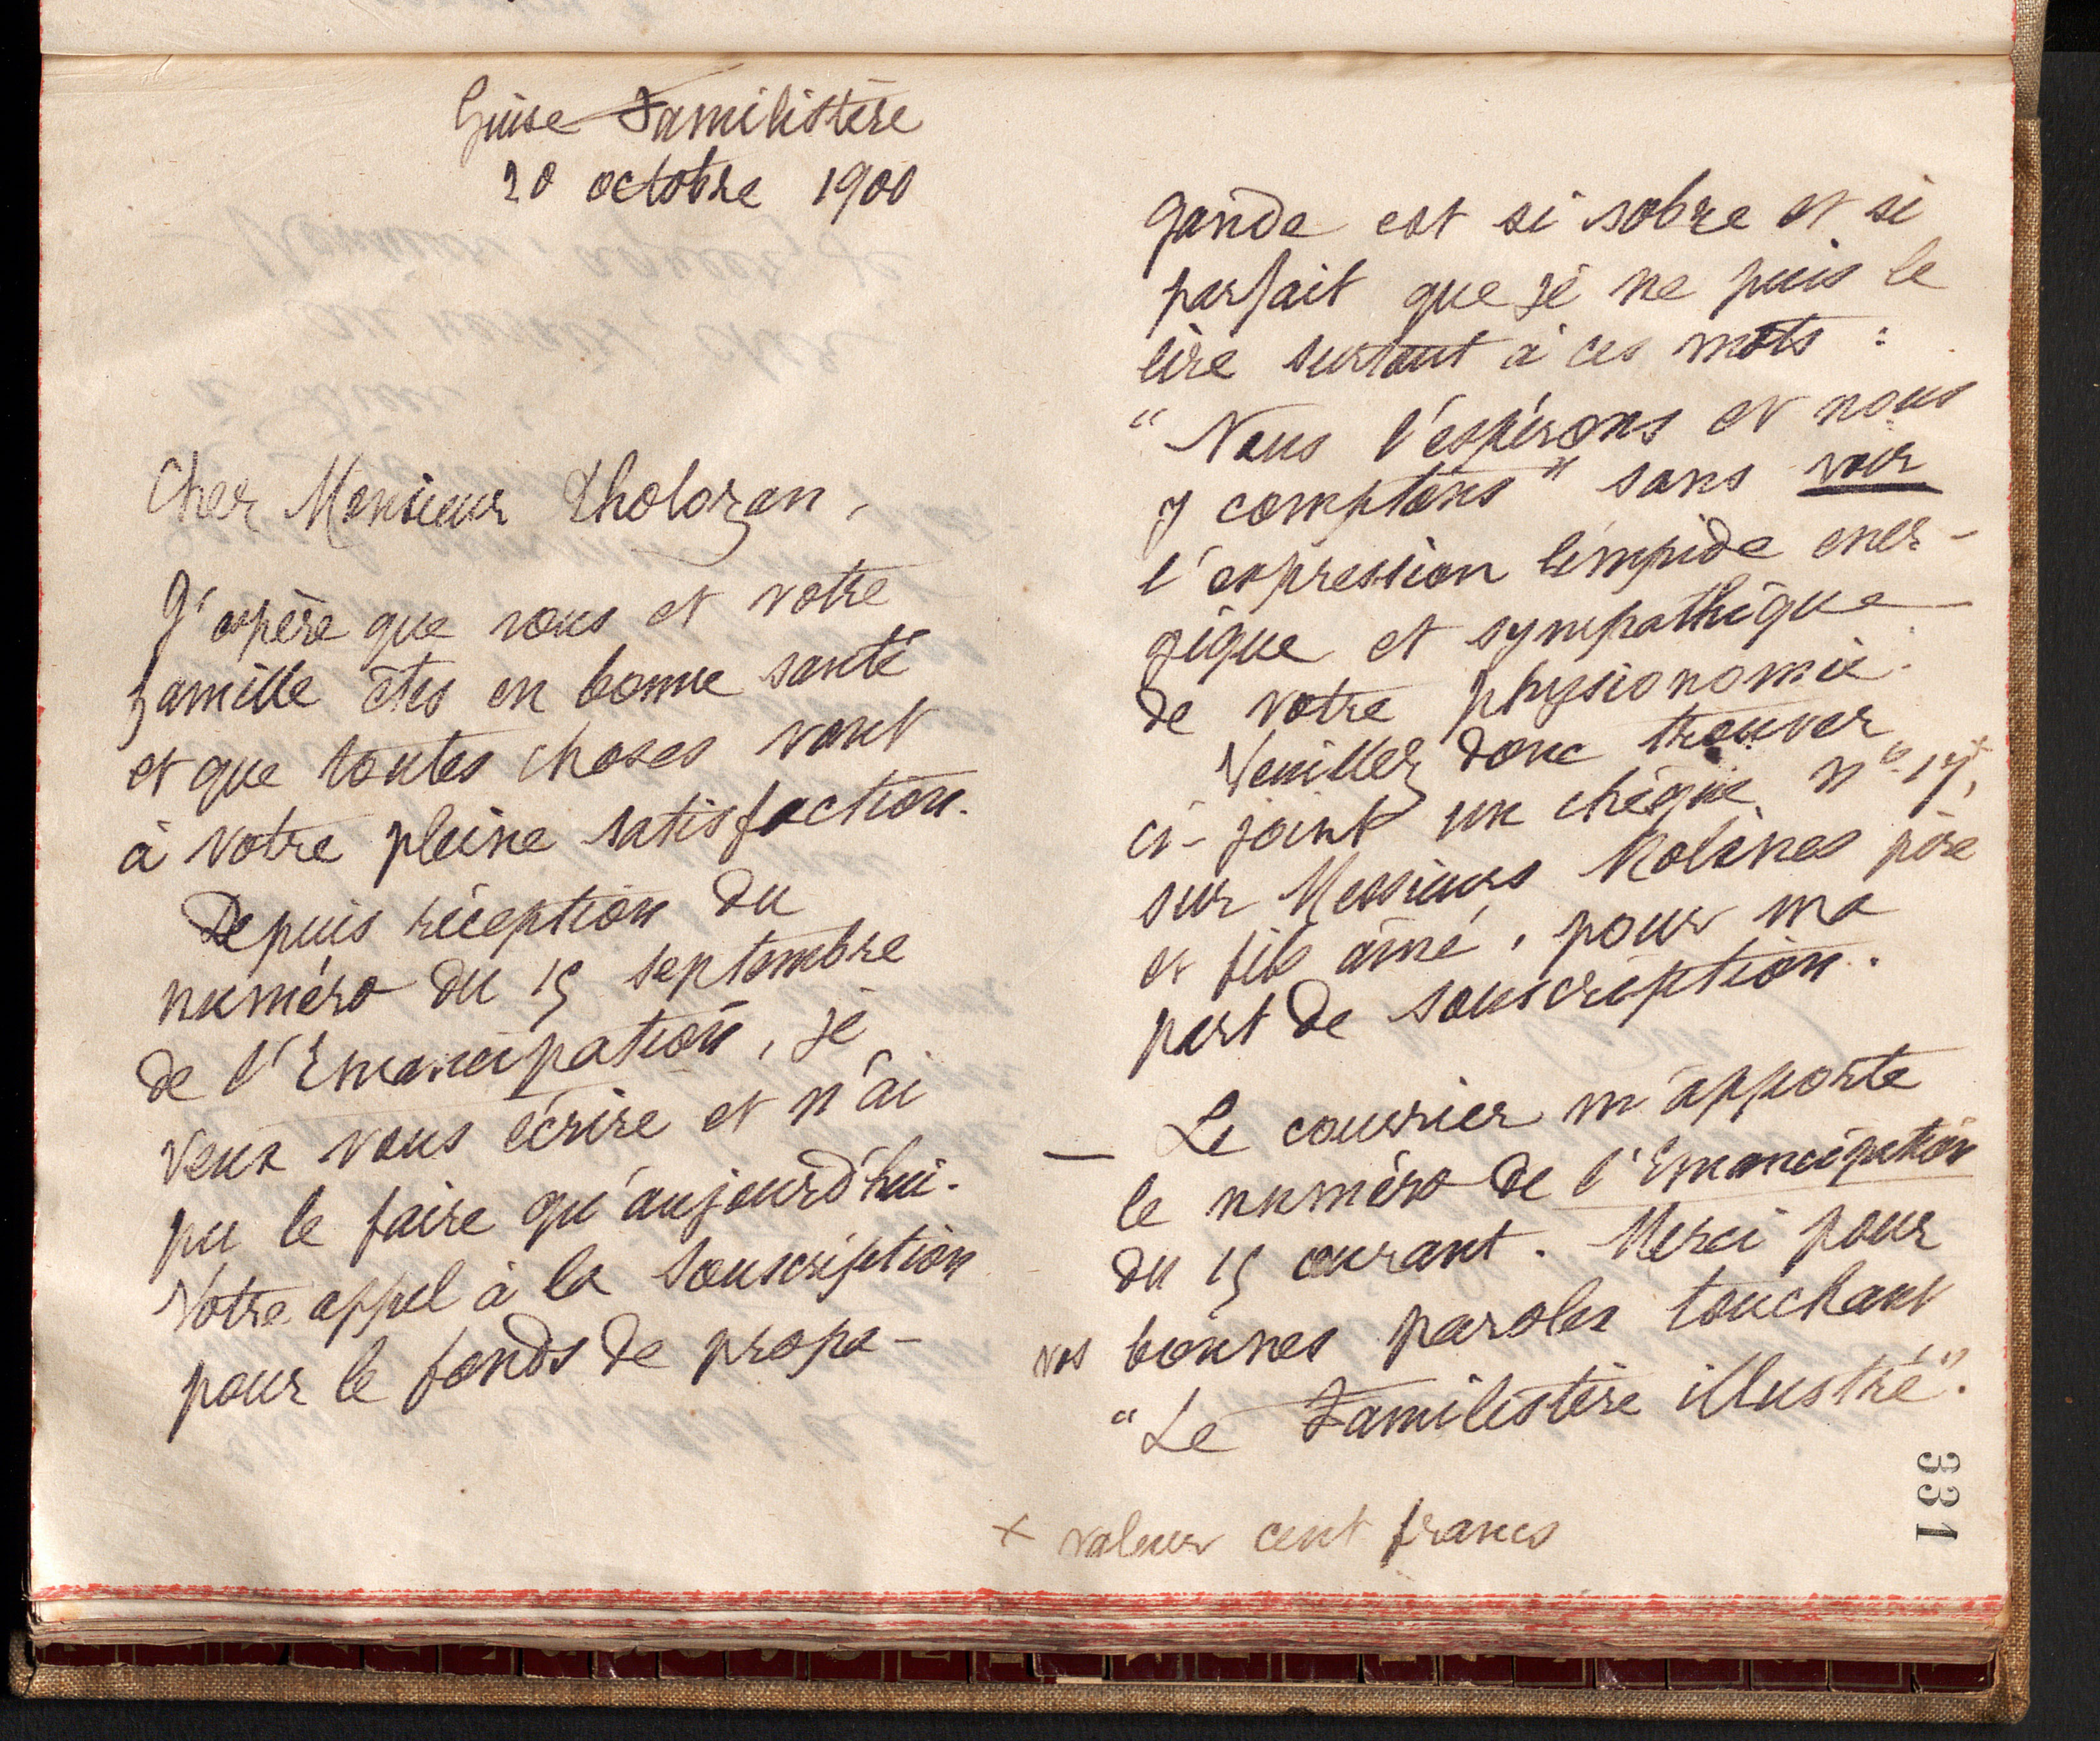 Guise Familistère
20 octobre 1900
Cher Monsieur Tholozan,
J'espère que vous et votre
famille êtes en bonne santé
et que toutes choses vont
à votre pleine satisfaction.
Depuis réception du
numéro du 15 septembre
de l'Emancipation, je
veux vous écrire et n'ai
pu le faire qu'aujourd'hui.
Votre appel à la souscription
pour le fonds de propa-
gande est si sobre et si
parfait que je ne puis le
lire surtout à ces mots :
"Nous l'espérons et nous
y comptons" sans voir
l'expression limpide éner-
gique et sympathique
de votre physionomie.
Veuillez donc trouver
ci-joint un chèque, n° 17,+
sur Messieurs Molines père
et fils aîné, pour ma
part de souscription.
— Le courrier m'apporte
le numéro de l'Emancipation
du 15 courant. Merci pour
vos bonnes paroles touchant
"Le Familistère illustré".
+ valeur cent francs
331